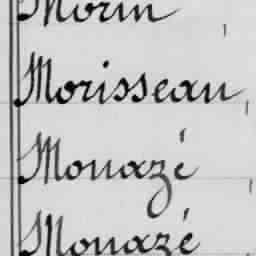 Morin
Morisseau
Mouazé
Mouazé